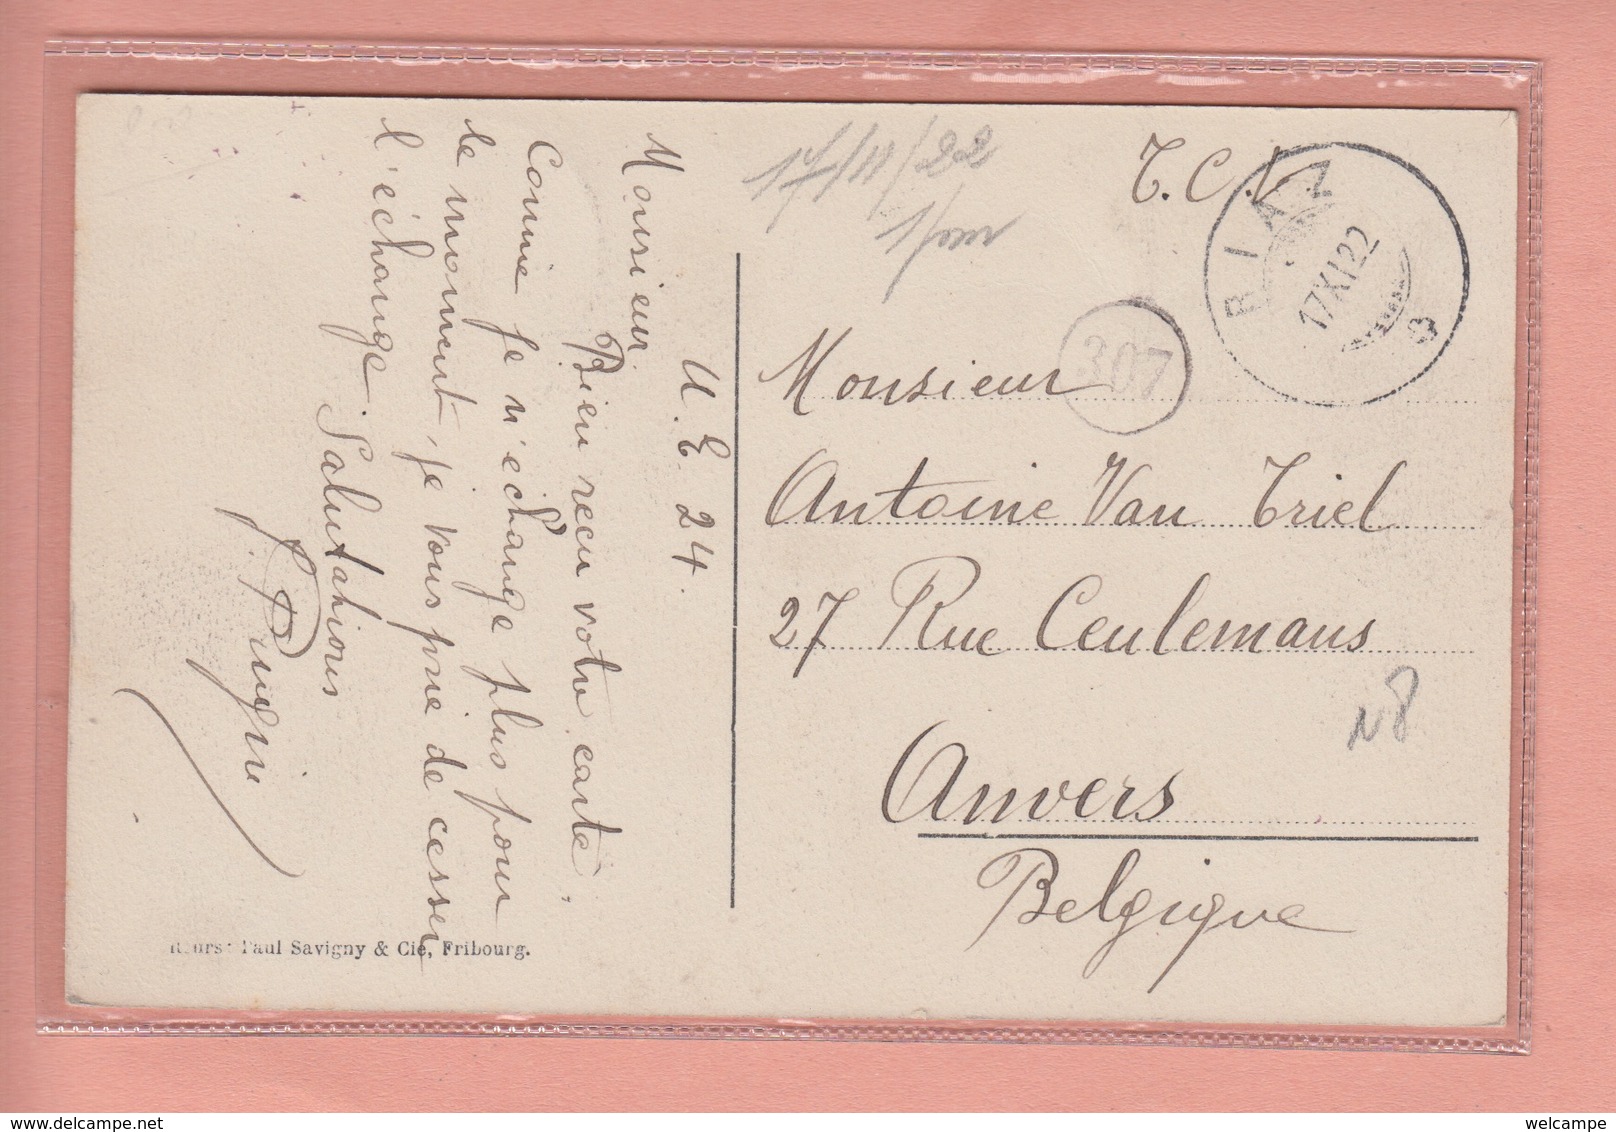 U. E. 24.
Monsieur
Bien reçu votre carte.
Comme je n'échange plus pour
le moment, je vous prie de cesser
l'échange. Salutations
J. Pugin
Edrs: Paul Savigny & Cie, Fribourg.
17/11/22
T. C. V.
RIAZ
17 XI 22
307
Monsieur
Antoine Van Triel
27 Rue Ceulemans
Anvers
Belgique
N8
welcampe